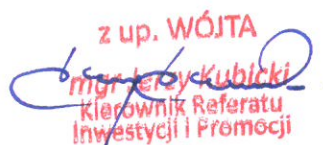 z up. WÓJTA
mgr Jerzy Kubicki
Kierownik Referatu
Inwestycji i Promocji